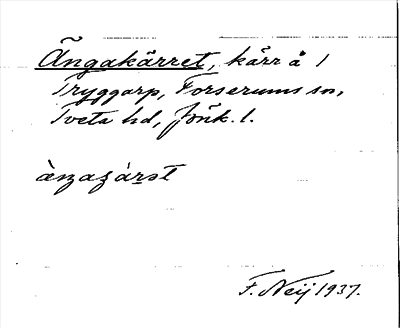 Ängakärret, kärr å 1
Tryggarp, Forserums sn,
Tveta hd, Jönk. l.
F. Neij 1937.